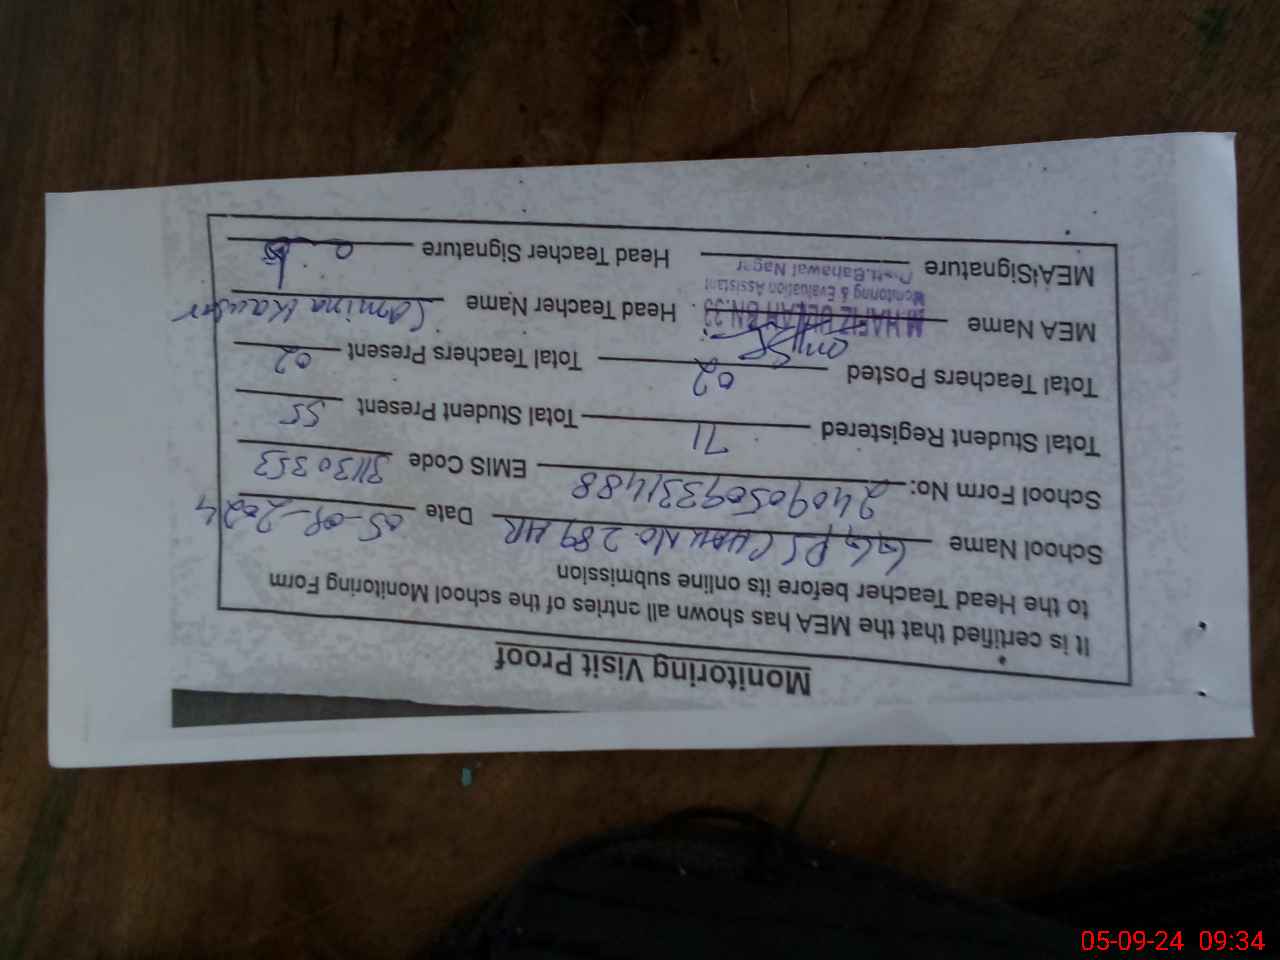 Monitoring Visit Proof
It is certified that the MEA has shown all entries of the school Monitoring Form
to the Head Teacher before its online submission
School Name GGPS CHAK NO 289 HR Date 05-09-2024
School Form No: 240905093331488 EMIS Code 31130353
Total Student Registered 71 Total Student Present 55
Total Teachers Posted 02 Total Teachers Present 02
MEA Name M.HAFIZ Head Teacher Name Kausar
Monitoring & Evaluation Assistant
Distt.Bahawal Nagar
MEA Signature Head Teacher Signature
05-09-24 09:34